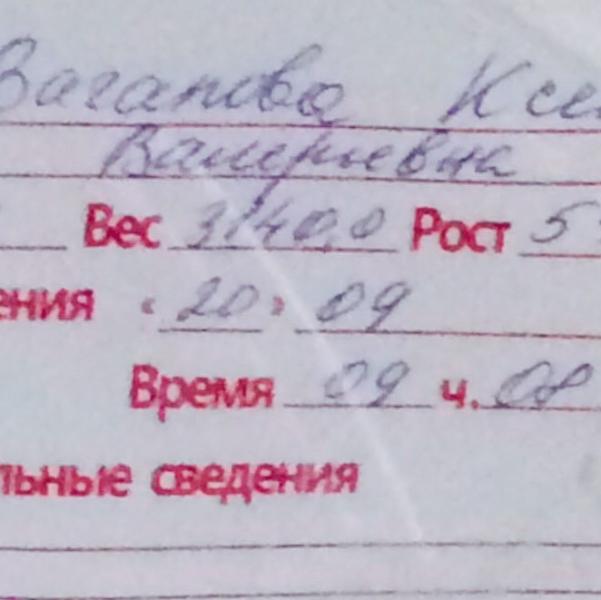 Вагапова Ксе
Валерьевна
Вес 3140,0 Рост 5
ения « 20 » 09
Время 09 ч. 08
льные сведения